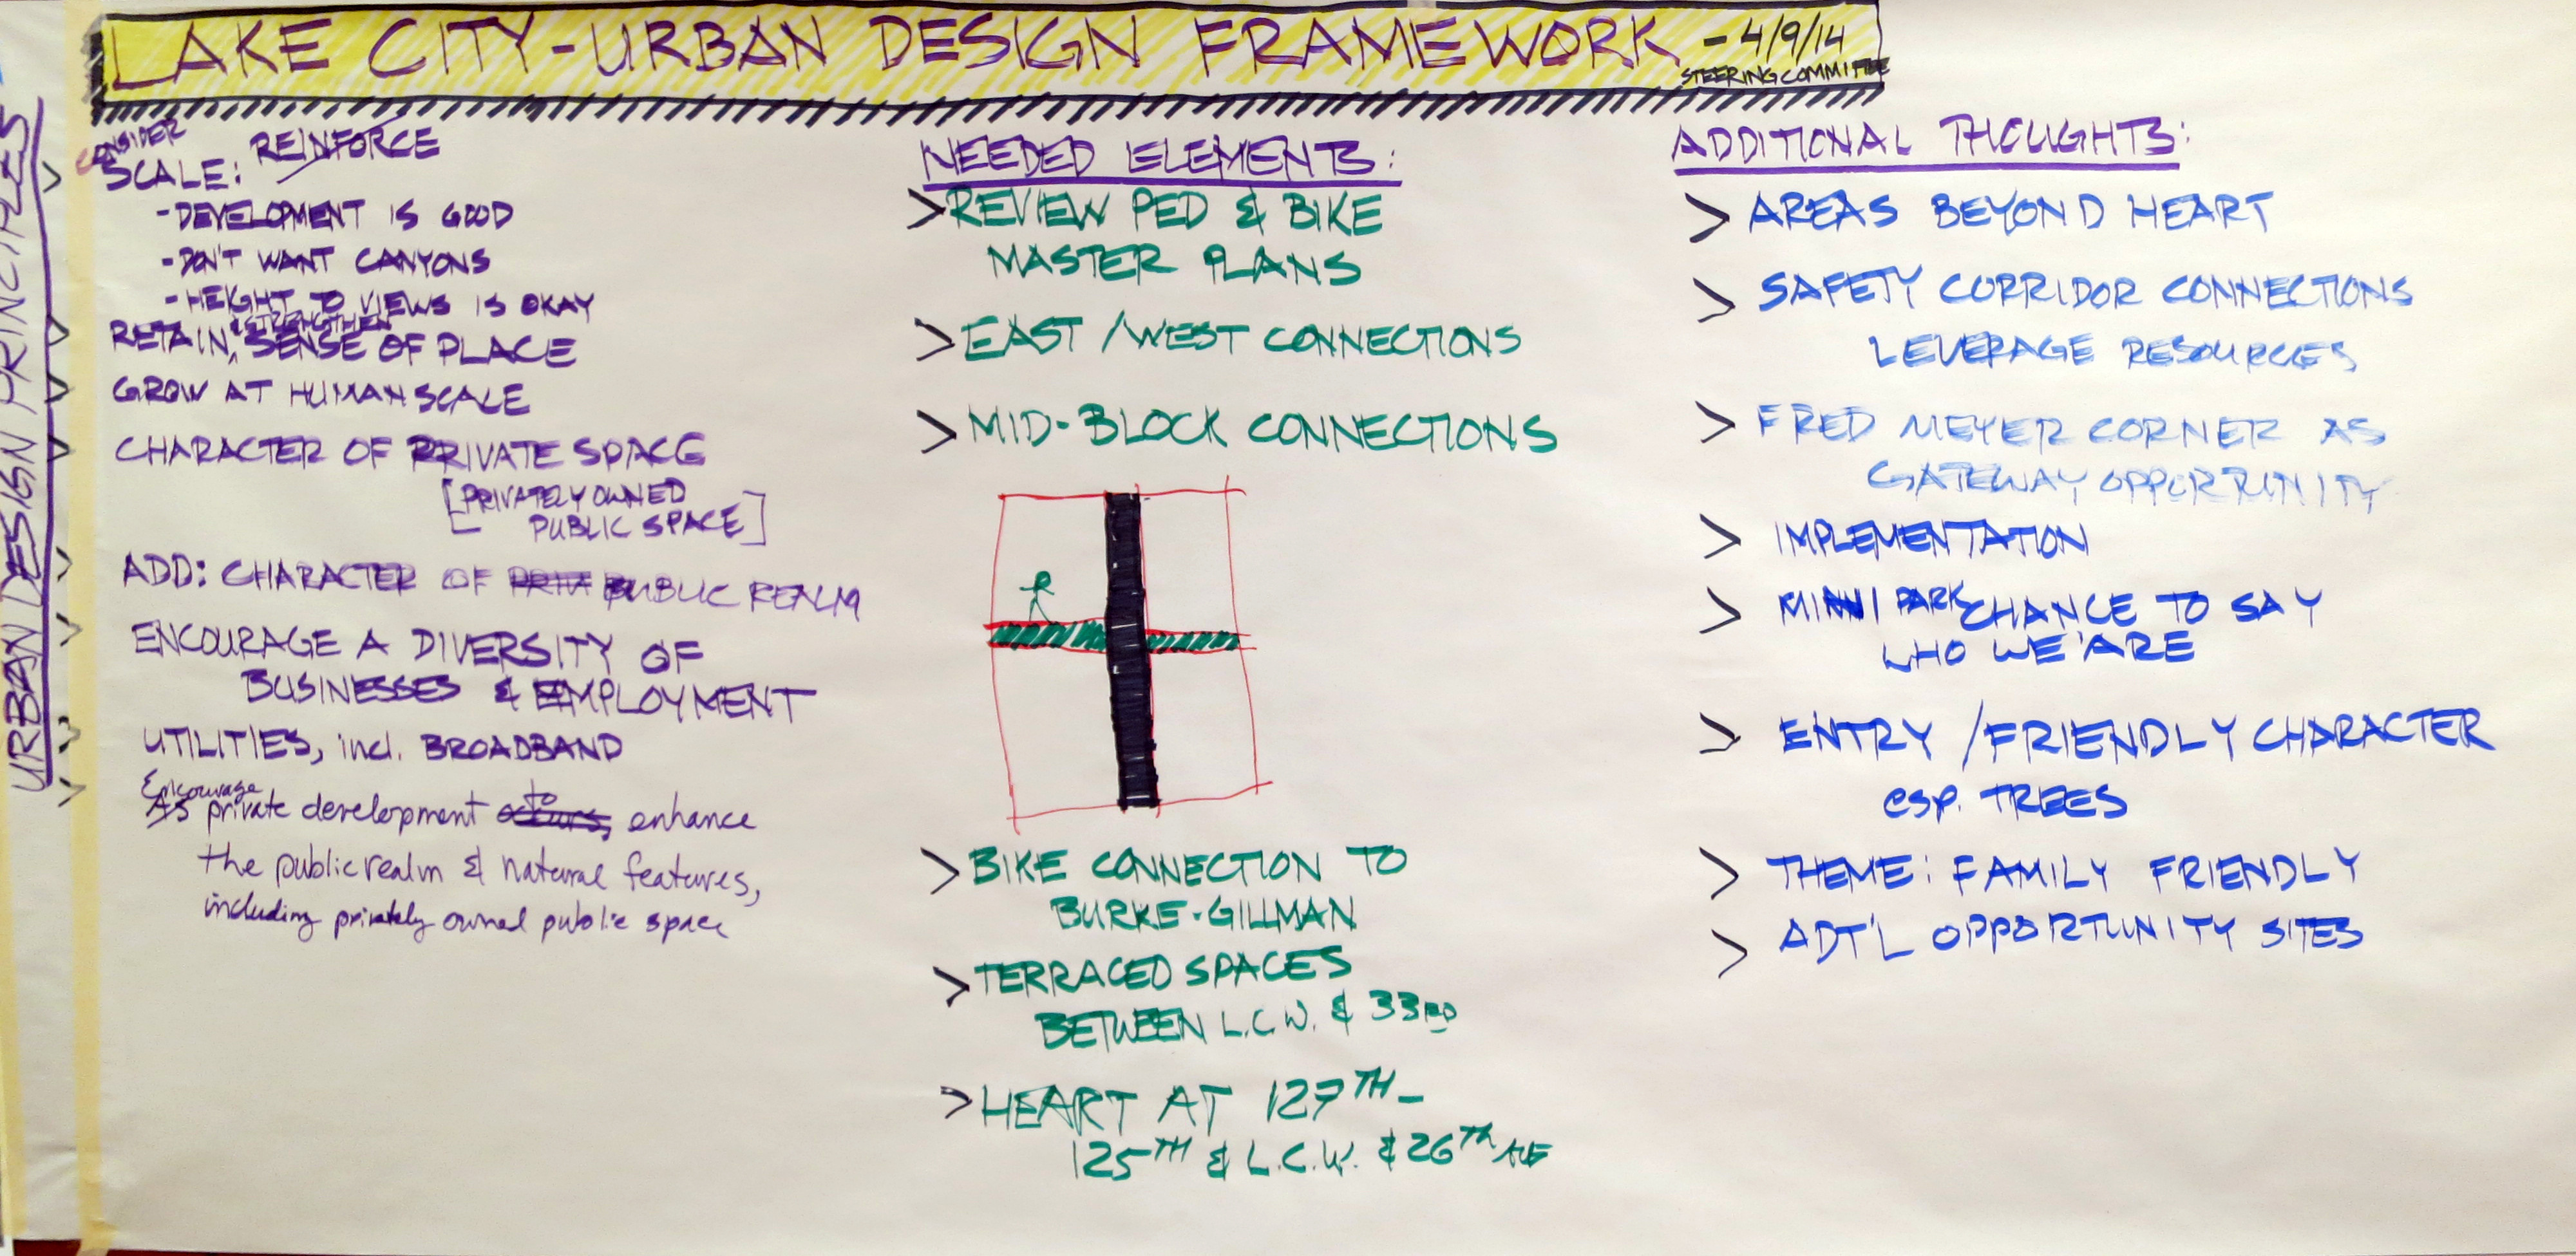 LAKE CITY-URBAN DESIGN FRAMEWORK - 4/9/14
STEERING COMMITTEE
URBAN DESIGN PRINCIPLES
CONSIDER
SCALE: REINFORCE
-DEVELOPMENT IS GOOD
-DON'T WANT CANYONS
-HEIGHT TO VIEWS IS OKAY
& STRENGTHEN
RETAIN, SENSE OF PLACE
GROW AT HUMAN SCALE
CHARACTER OF PRIVATE SPACE
[PRIVATELY OWNED
PUBLIC SPACE]
ADD: CHARACTER OF PRIVA PUBLIC REALM
ENCOURAGE A DIVERSITY OF
BUSINESSES & EMPLOYMENT
UTILITIES, incl. BROADBAND
Encourage to
As private development occurs, enhance
the public realm & natural features,
including privately owned public space
NEEDED ELEMENTS:
> REVIEW PED & BIKE
MASTER PLANS
> EAST/WEST CONNECTIONS
> MID-BLOCK CONNECTIONS
> BIKE CONNECTION TO
BURKE-GILLMAN
> TERRACED SPACES
BETWEEN L.C.W. & 33RD
> HEART AT 127TH -
125TH & L.C.W. & 26TH AVE
ADDITIONAL THOUGHTS:
> AREAS BEYOND HEART
> SAFETY CORRIDOR CONNECTIONS
LEVERAGE RESOURCES
> FRED MEYER CORNER AS
GATEWAY OPPORTUNITY
> IMPLEMENTATION
> MINI PARK CHANCE TO SAY
WHO WE ARE
> ENTRY/FRIENDLY CHARACTER
esp. TREES
> THEME: FAMILY FRIENDLY
> ADT'L OPPORTUNITY SITES